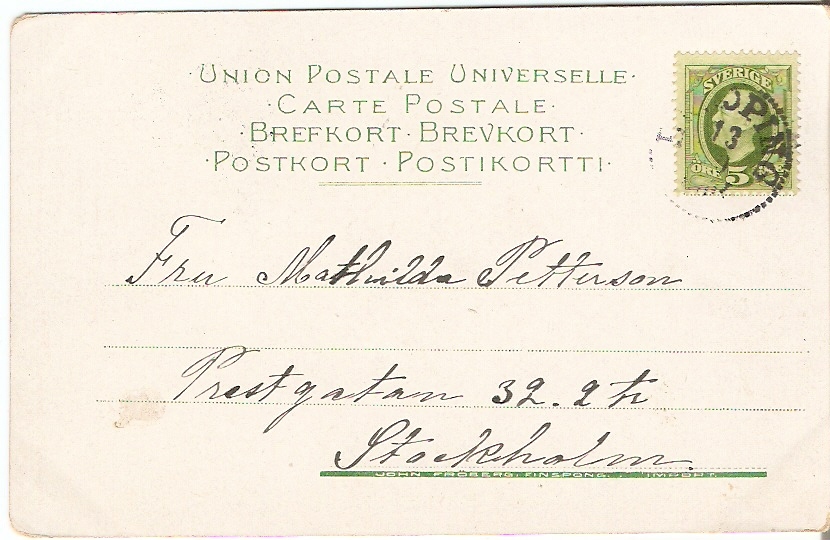 · UNION POSTALE UNIVERSELLE ·
· CARTE POSTALE ·
· BREFKORT · BREVKORT ·
· POSTKORT · POSTIKORTTI ·
SVERIGE
ÖPING
13
ÖRE 5
Fru Mathilda Petterson
Prestgatan 32. 2 tr
Stockholm.
JOHN FRÖBERG. FINSPONG. . IMPORT.